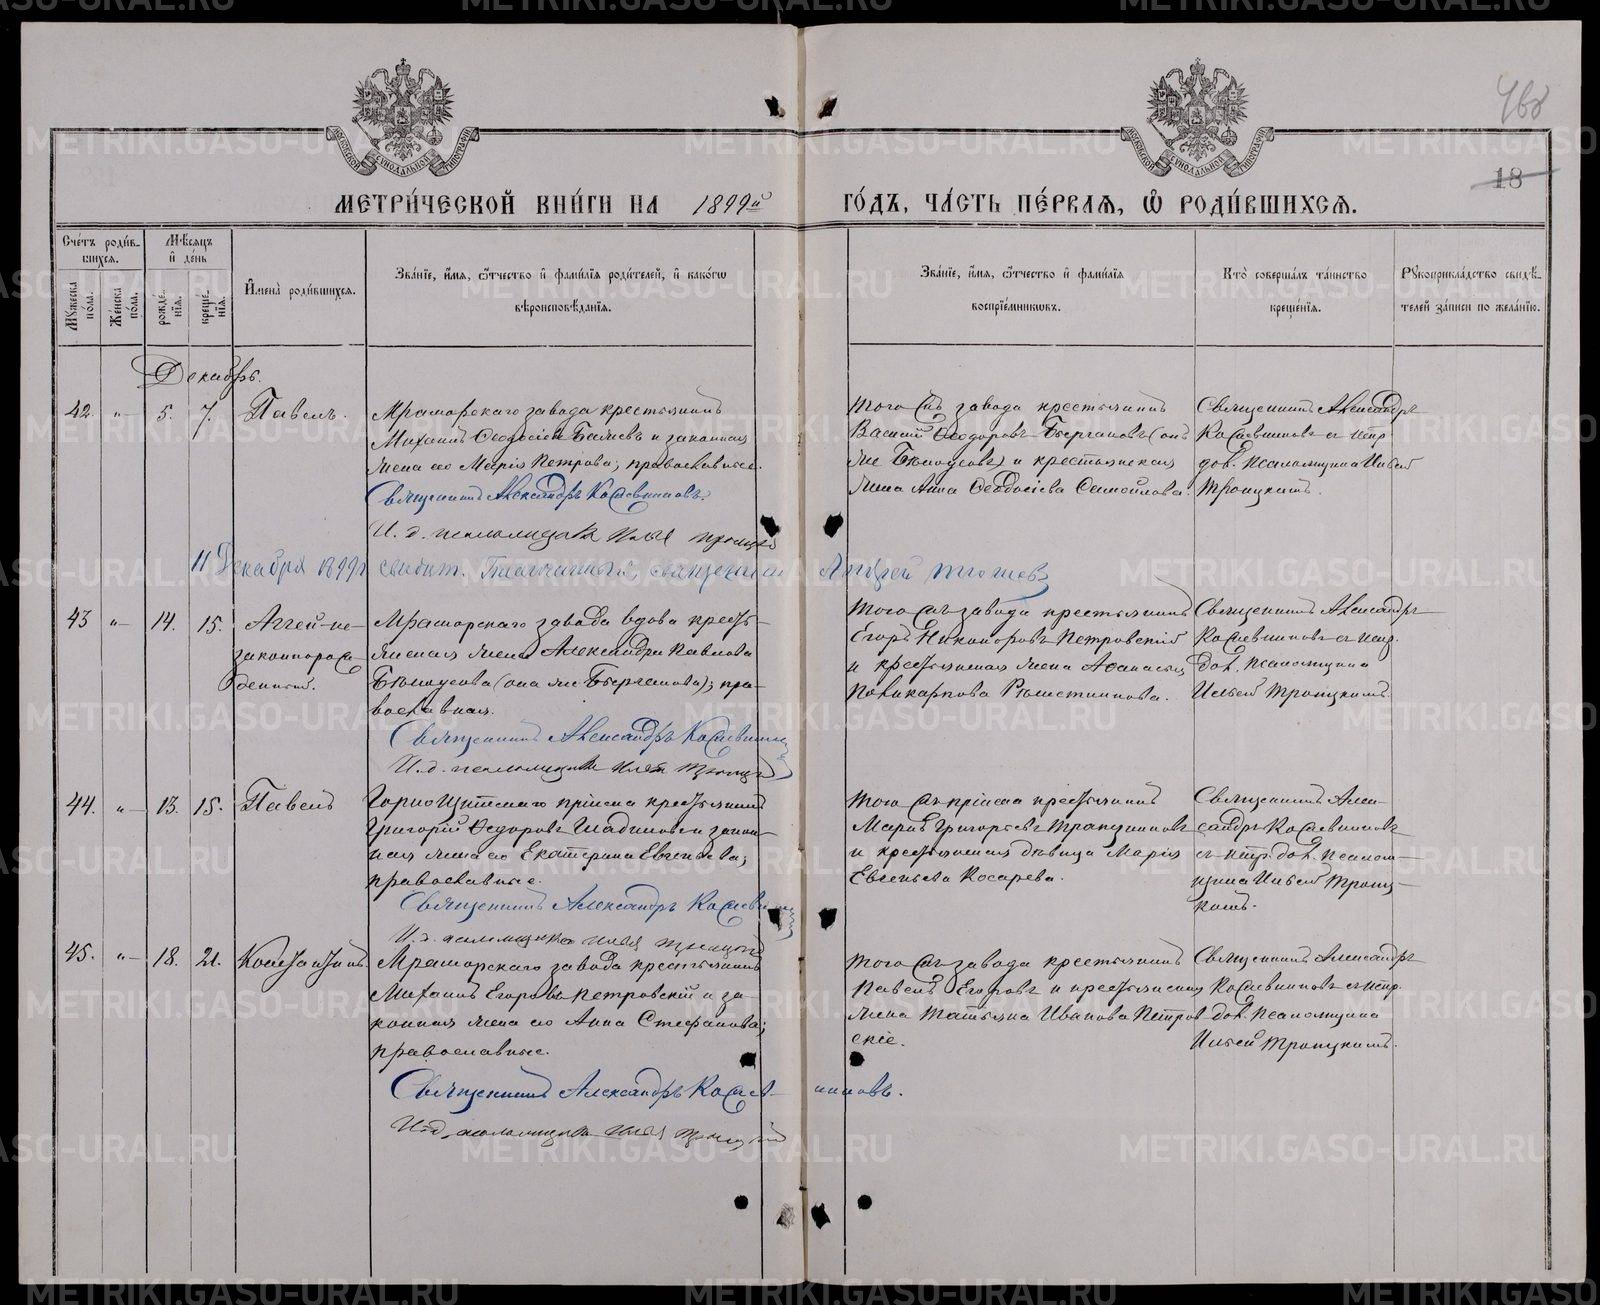 МЕТРИ́ЧЕСКОЙ КНИ́ГИ НА 1899й ГО́ДЪ, ЧА́СТЬ ПЕ́РВАЯ, Ѡ РОДИ́ВШИХСЯ.
18
Сче́тъ роди́в-
шихся.
Му́жеска по́ла.
Же́нска по́ла.
Мѣсяцъ
и де́нь
рожде́-
нія.
креще́-
нія.
Имена̀ роди́вшихся.
Зва́ніе, и́мя, о́тчество и фами́лія роди́телей, и како́гѡ
вѣроисповѣ́данія.
Зва́ніе, и́мя, о́тчество и фами́лія
воспріе́мниковъ.
Кто̀ соверша́лъ та́инство
креще́нія.
Рꙋкоприкла́дство свидѣ́-
телей за́писи по жела́нію.
Декабрь.
42. „— 5. 7. Павелъ.
Мраморскаго завода крестьянинъ
Михаилъ Ѳеодосіевъ Баляевъ и законная
жена его Марія Петрова; православные.
Священникъ Александръ
И. д. псаломщика Илія Троицкій
Того съ завода крестьянинъ
Василій Ѳеодоровъ Берчановъ (онъ
же Бѣлоусовъ) и крестьянская
жена Анна Ѳеодосіева Самойлова.
Священникъ Александръ
съ испр.
дол. псаломщика Ильей
Троицкимъ.
11 Декабря 1899 г. свидѣт. Благочинный, священникъ Андрей
43 „— 14. 15. Аггей не-
законнорож-
денный.
Мраморскаго завода вдова кресть-
янская жена Александра Павлова
Бѣлоусова (она же Берчанова); пра-
вославная.
Священникъ Александръ
И. д. псаломщика Илія Троицкій
Того съ завода крестьянинъ
Егоръ Никаноровъ Петровскій
и крестьянская жена Аѳанасія
Поликарпова
Священникъ Александръ
съ испр.
дол. псаломщика
Ильей Троицкимъ.
44. „— 13. 15. Павелъ
Горнощитскаго пріиска крестьянинъ
Григорій Ѳедоровъ и закон-
ная жена его Екатерина Евгеньева;
православные.
Священникъ Александръ
И. д. псаломщика Илія Троицкій
Того съ пріиска крестьянинъ
Григорьевъ
и крестьянская дѣвица Марія
Евгеньева Косарева.
Священникъ Алек-
сандръ
съ испр. дол. псалом-
щика Ильей Троиц-
кимъ.
45. „— 18. 21. Константинъ.
Мраморскаго завода крестьянинъ
Михаилъ Егоровъ Петровскій и за-
конная жена его Анна Стефанова;
православные.
Священникъ Александръ
И. д. псаломщика Илія Троицкій
Того съ завода крестьянинъ
Павелъ Егоровъ и крестьянская
жена Татьяна Иванова Петров-
скіе.
Священникъ Александръ
съ испр.
дол. псаломщика
Ильей Троицкимъ.
METRIKI.GASO-URAL.RU